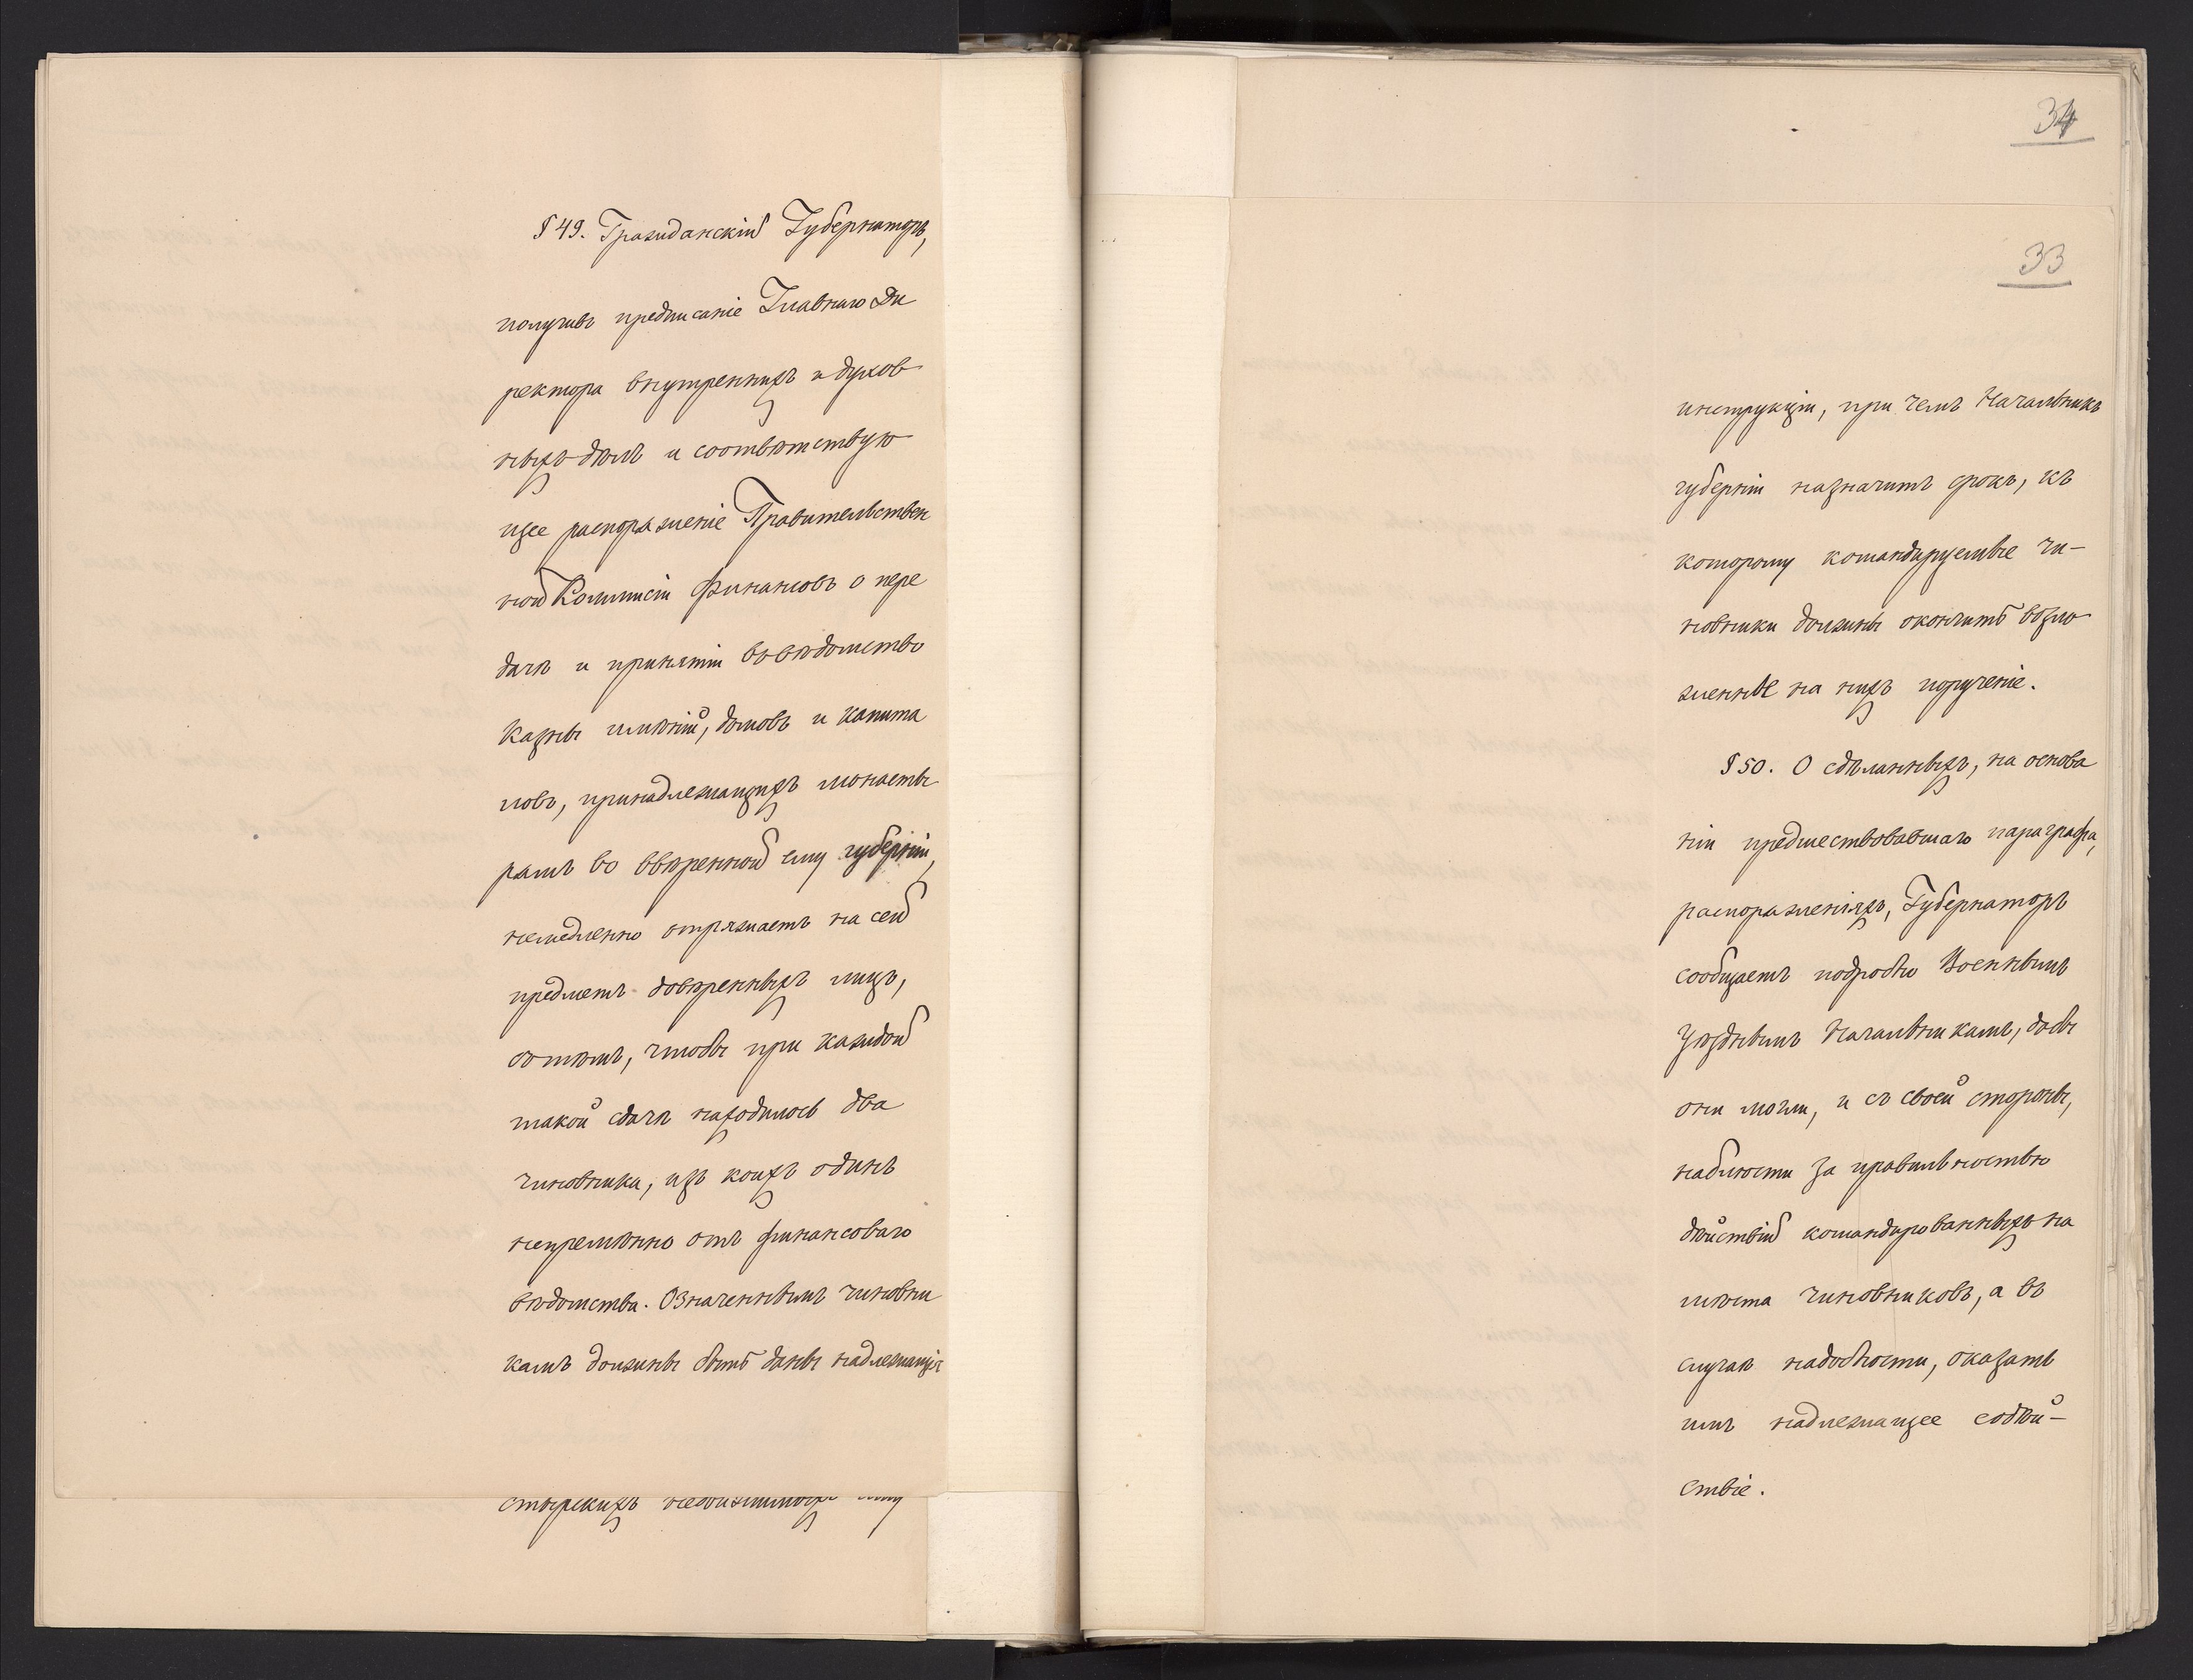 § 49. Гражданскій Губернаторъ,
получивъ предписаніе Главнаго Ди
ректора внутреннихъ и духов
ныхъ дѣлъ и соотвѣтствую
щее распоряженіе Правительствен
ной Коммисіи Финансовъ о пере
дачѣ и принятіи въ вѣдомство
Казны имѣній, домовъ и капита
ловъ, принадлежащихъ монасты
рямъ во ввѣренной ему губерніи,
немедленно отряжаетъ на сей
предметъ довѣренныхъ лицъ,
съ тѣмъ, чтобы при каждой
такой сдачѣ находилось два
чиновника, изъ коихъ одинъ
непремѣнно отъ финансоваго
вѣдомства. Означеннымъ чиновни
камъ должны быть даны надлежащія
34
33
инструкціи, при чемъ Начальникъ
губерніи назначитъ срокъ, къ
которому командируемые чи-
новники должны окончить возло
женное на нихъ порученіе.
§ 50. О сдѣланныхъ, на основа
ніи предшествовавшаго параграфа,
распоряженіяхъ, Губернаторъ
сообщаетъ подробно Военнымъ
Уѣзднымъ Начальникамъ, дабы
они могли, и съ своей стороны,
наблюсти за правильностью
дѣйствій командированныхъ на
мѣста чиновниковъ, а въ
случаѣ надобности, оказать
имъ надлежащее содѣй-
ствіе.